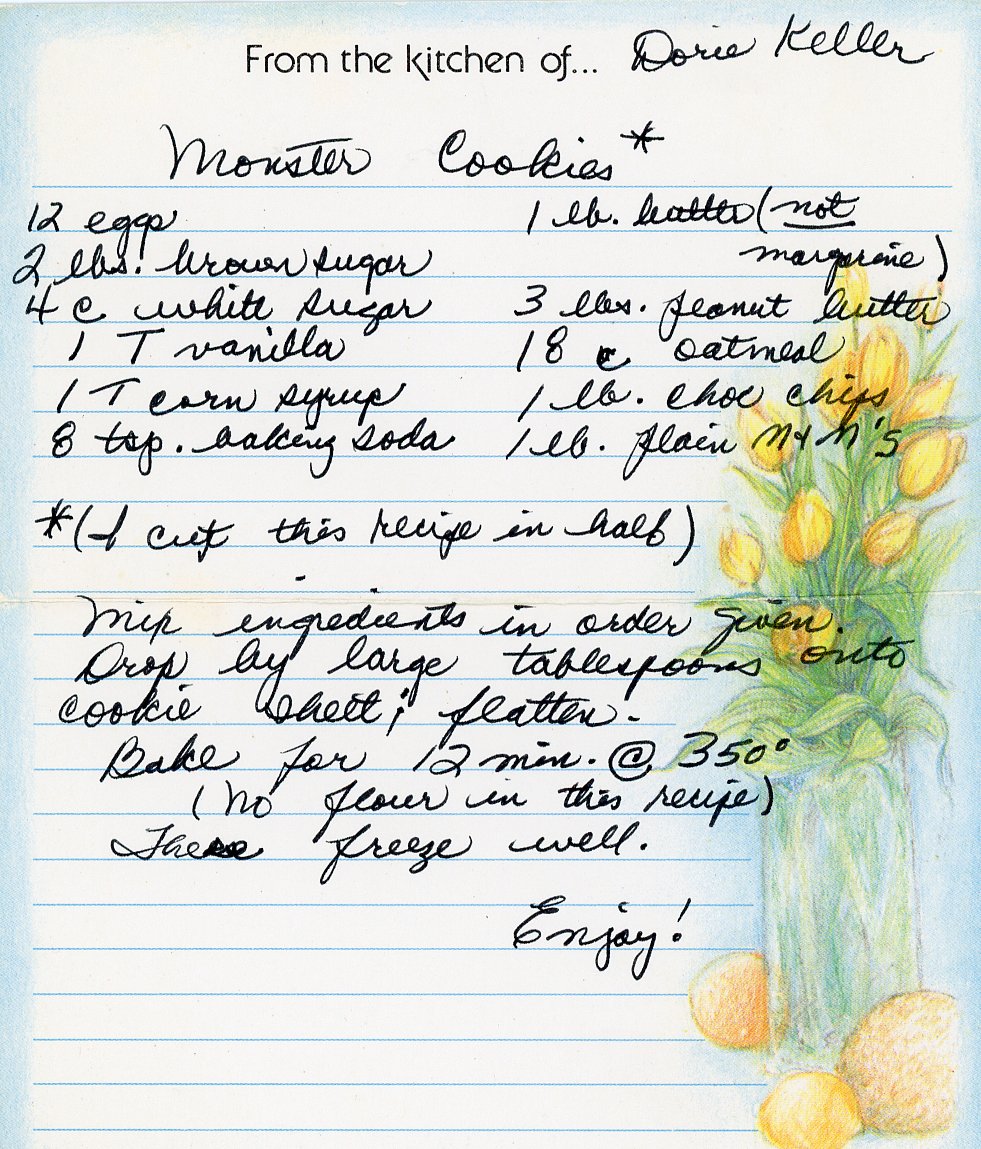 From the kitchen of... Dorie Keller
Monster Cookies*
12 eggs
2 lbs. brown sugar
4 c white sugar
1 T vanilla
1 T corn syrup
8 tsp. baking soda
1 lb. butter (not
margarine)
3 lbs. peanut butter
18 c oatmeal
1 lb. choc chips
1 lb. plain M+M's
*(I cut this recipe in half)
Mix ingredients in order given.
Drop by large tablespoons onto
cookie sheet; flatten.
Bake for 12 min. @ 350°
(No flour in this recipe)
These freeze well.
Enjoy!